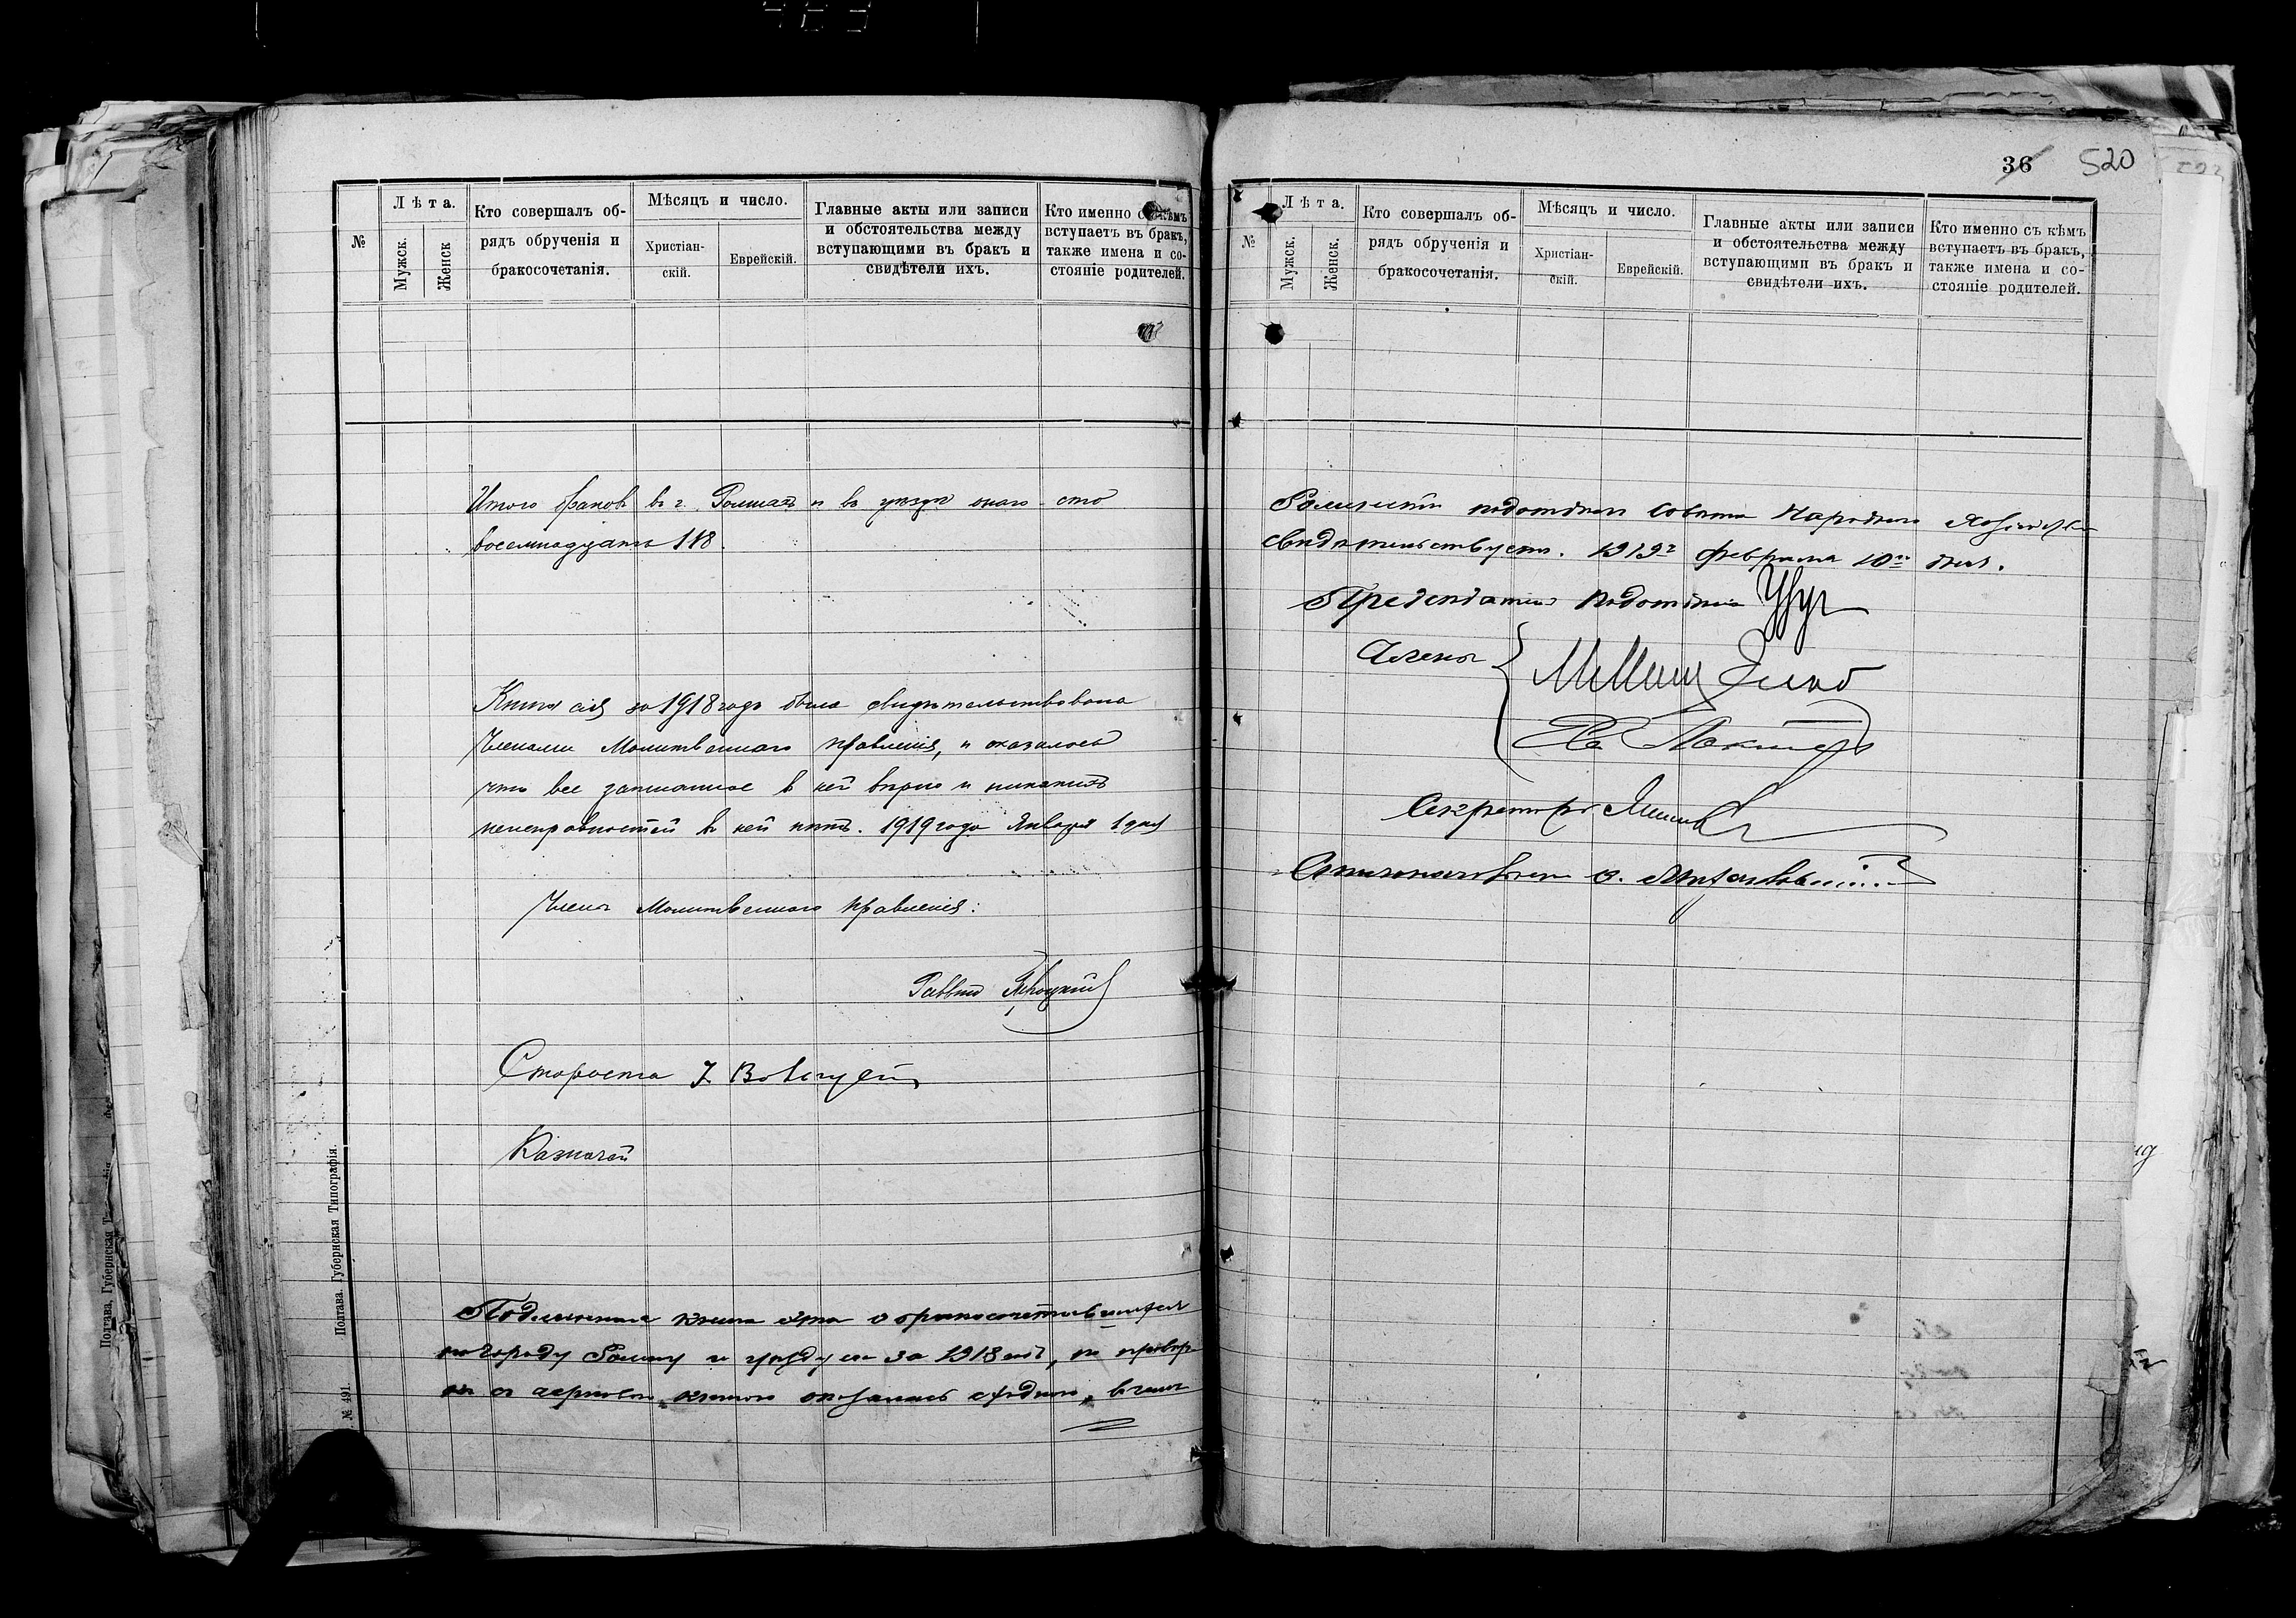 №
Лѣта.
Мужск.
Женск
Кто совершалъ об-
рядъ обрученія и
бракосочетанія.
Мѣсяцъ и число.
Христіан-
скій.
Еврейскій.
Главные акты или записи
и обстоятельства между
вступающими въ бракъ и
свидѣтели ихъ.
Кто именно съ кѣмъ
вступаетъ въ бракъ,
также имена и со-
стояніе родителей.
Итого браков в г. Ромнах и в уезде оного - сто
восемнадцать 118.
Книга сія за 1918 годъ была свидѣтельствована
Членами Молитвеннаго правленія, и оказалось
что все записанное в ней вѣрно и никакихъ
неисправностей в ней нѣтъ. 1919 года Января 1 дня
Члены Молитвеннаго правленія:
Раввин
Староста
Казначей
Подлинная книга эта о бракосочетавшихся
по городу Ромну и уезду за 1918 год, по провер-
ке с черновою книгою оказалась сходною, в чем
Полтава. Губернская Типографія.
№ 491.
Полтава. Губернская
36 520
№
Лѣта.
Мужск.
Женск.
Кто совершалъ об-
рядъ обрученія и
бракосочетанія.
Мѣсяцъ и число.
Христіан-
скій.
Еврейскій.
Главные акты или записи
и обстоятельства между
вступающими въ бракъ и
свидѣтели ихъ.
Кто именно съ кѣмъ
вступаетъ въ бракъ,
также имена и со-
стояніе родителей.
подотдел Совета Народного Хозяйства
свидетельствует. 1919 г. февраля 10 дня.
Председатель Подотдела
Члены
Секретарь